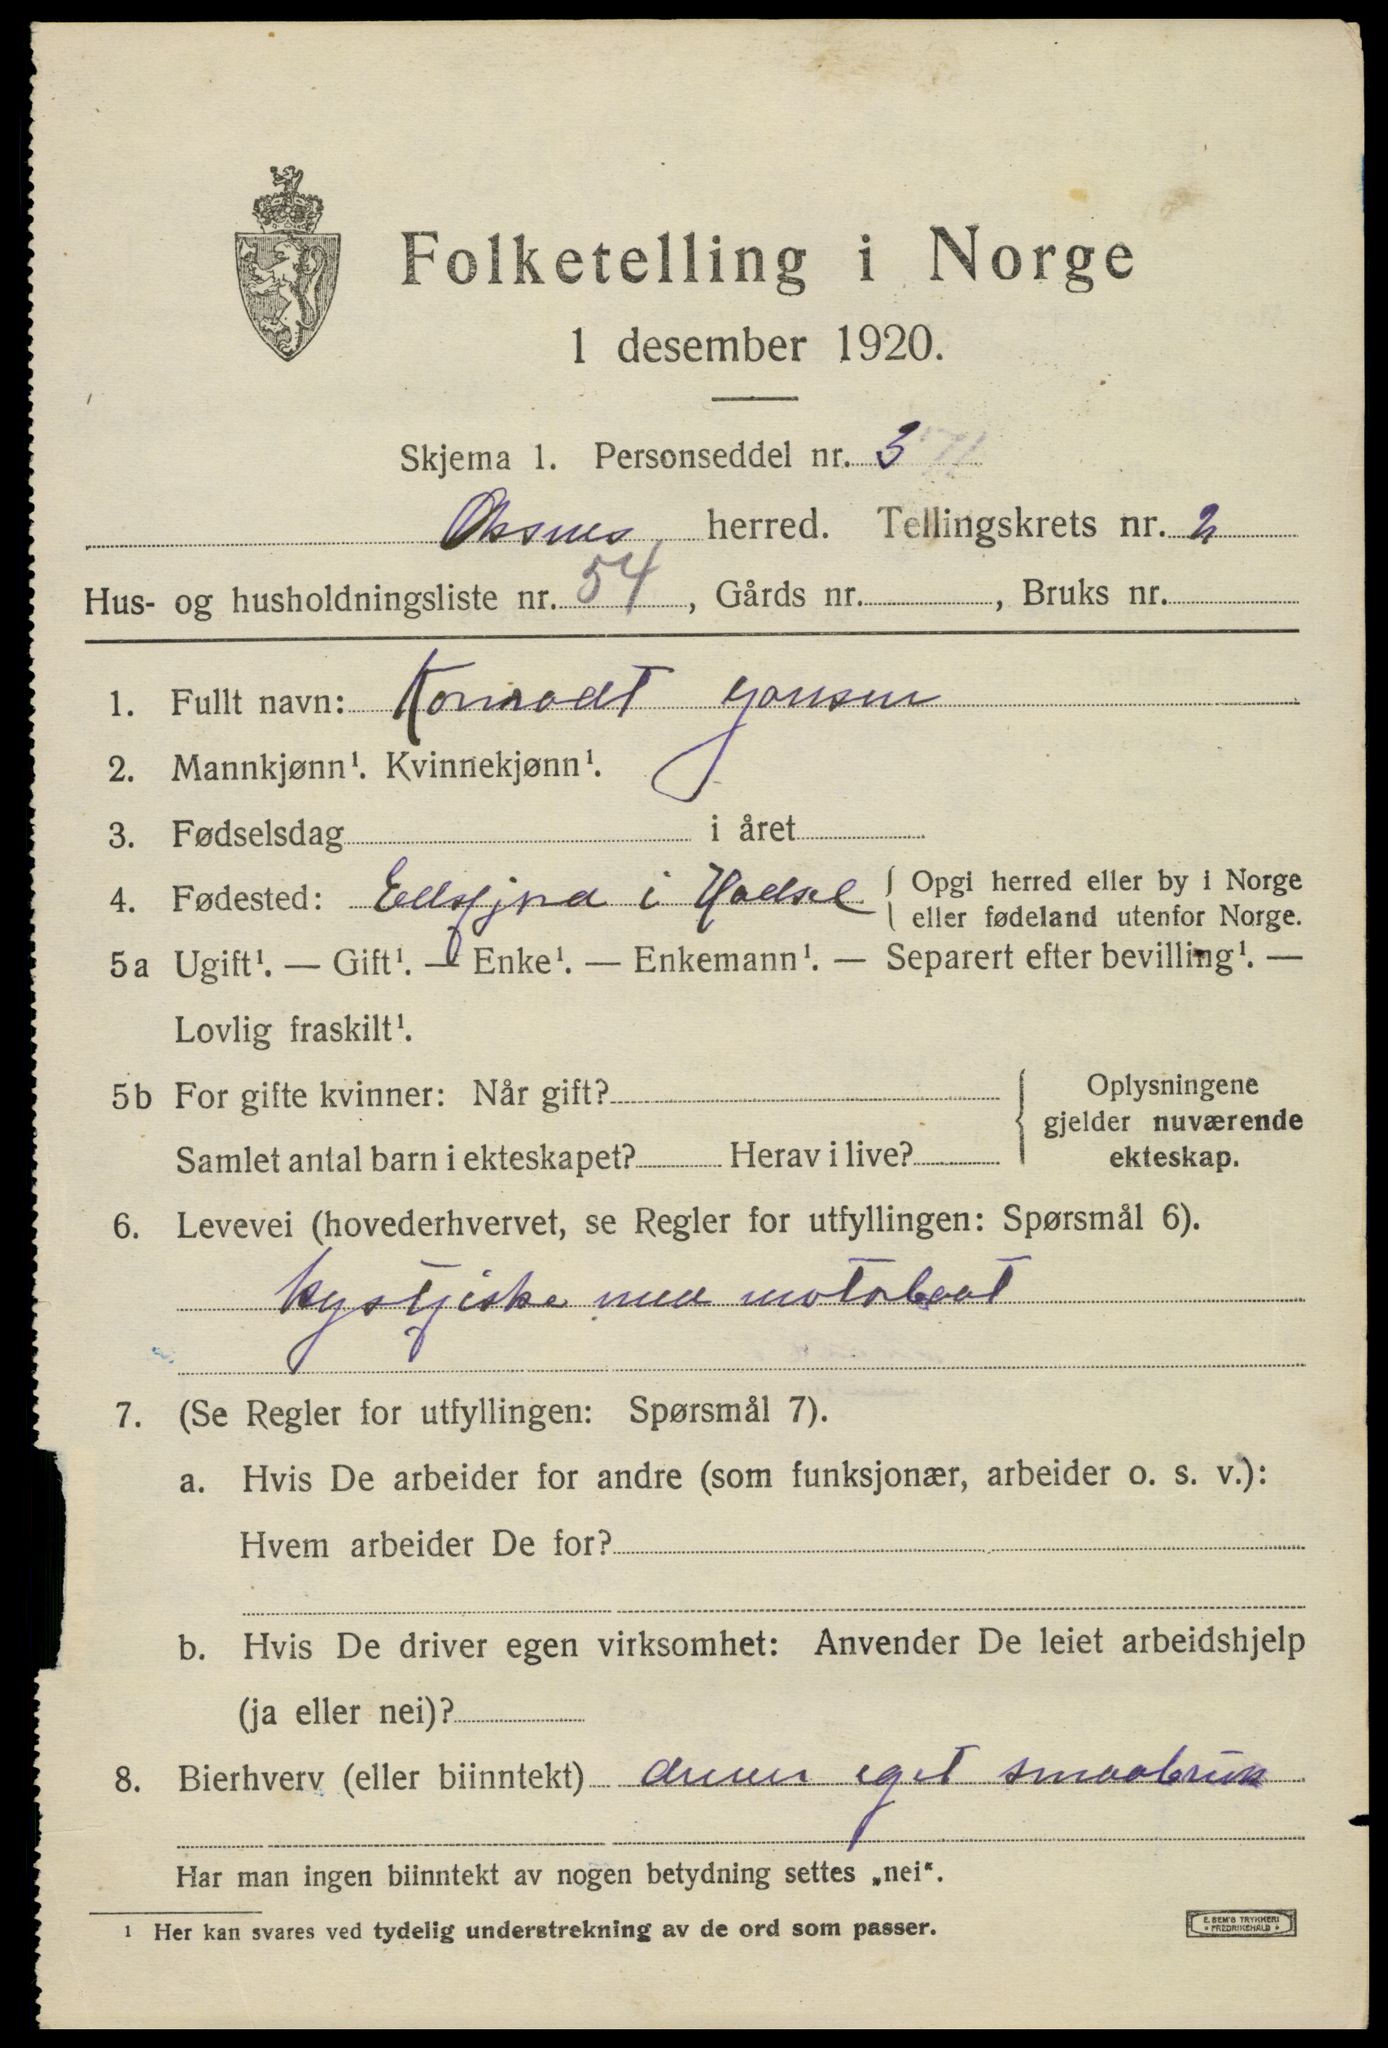 Folketelling i Norge
1 desember 1920.
Skjema 1. Personseddel nr. 3
Øksnes herred. Tellingskrets nr. 2
Hus- og husholdningsliste nr. 54, Gårds nr. , Bruks nr.
1. Fullt navn: Konradt Jonsen
2. Mannkjønn¹. Kvinnekjønn¹.
3. Fødselsdag i året
4. Fødested: Eidsfjord i Hadsel { Opgi herred eller by i Norge
eller fødeland utenfor Norge.
5a Ugift¹. — Gift¹. — Enke¹. — Enkemann¹. — Separert efter bevilling¹. —
Lovlig fraskilt¹.
5b For gifte kvinner: Når gift? { Oplysningene
gjelder nuværende
Samlet antal barn i ekteskapet? Herav i live? ekteskap.
6. Levevei (hovederhvervet, se Regler for utfyllingen: Spørsmål 6).
kystfiske med motorbaat
7. (Se Regler for utfyllingen: Spørsmål 7).
a. Hvis De arbeider for andre (som funksjonær, arbeider o. s. v.):
Hvem arbeider De for?
b. Hvis De driver egen virksomhet: Anvender De leiet arbeidshjelp
(ja eller nei)?
8. Bierhverv (eller biinntekt) driver eget smaabruk
Har man ingen biinntekt av nogen betydning settes „nei“.
¹ Her kan svares ved tydelig understrekning av de ord som passer.
E. SEM'S TRYKKERI
FREDRIKSHALD